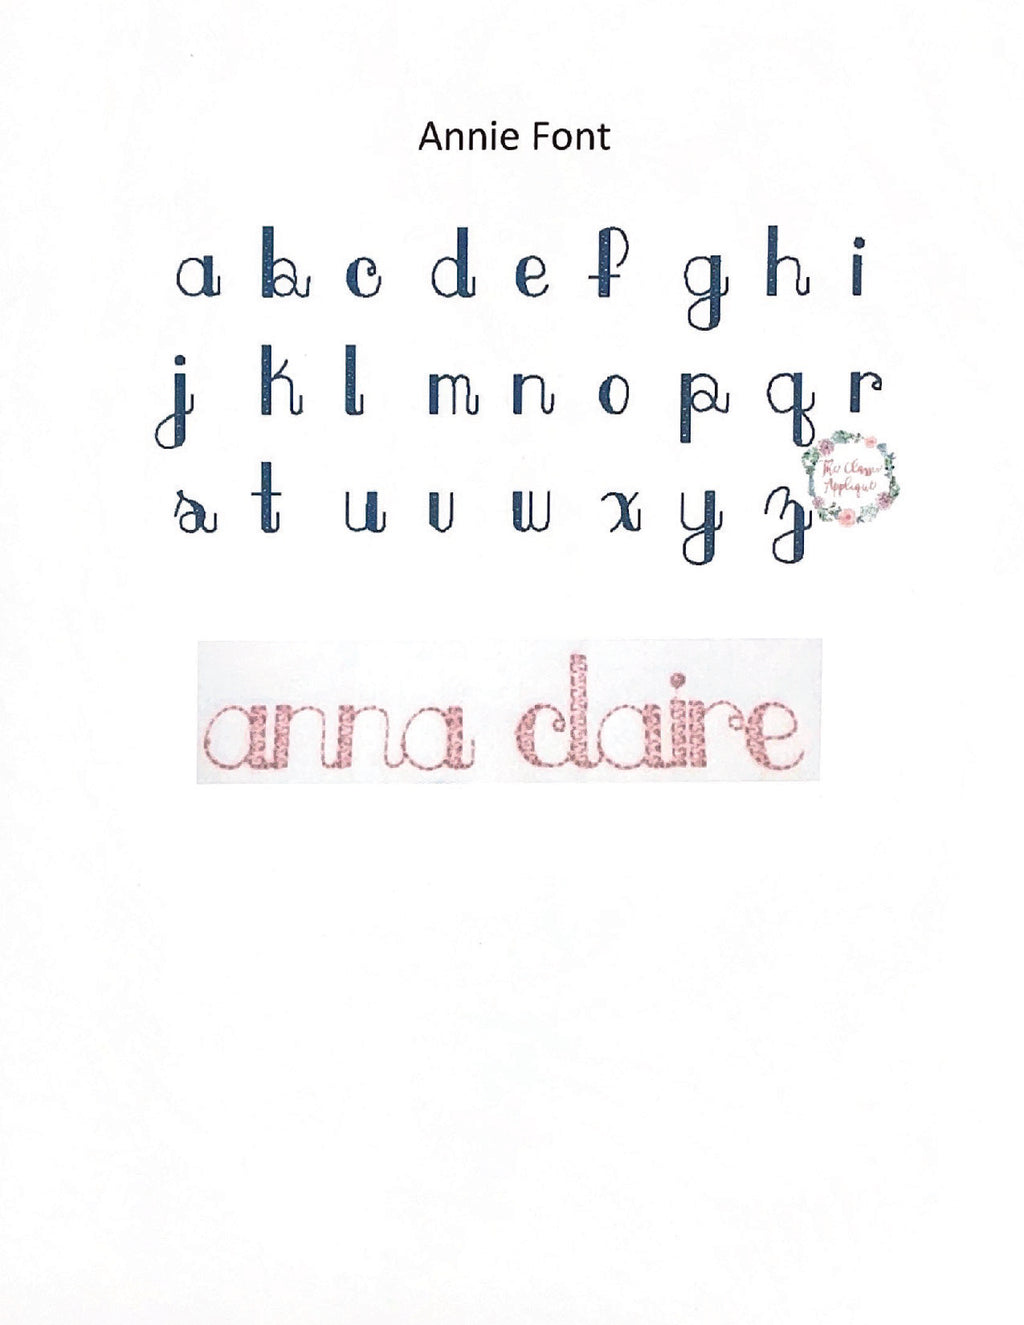 Annie Font
a b c d e f g h i
j k l m n o p q r
s t u v w x y z
The Classic
Applique
anna claire